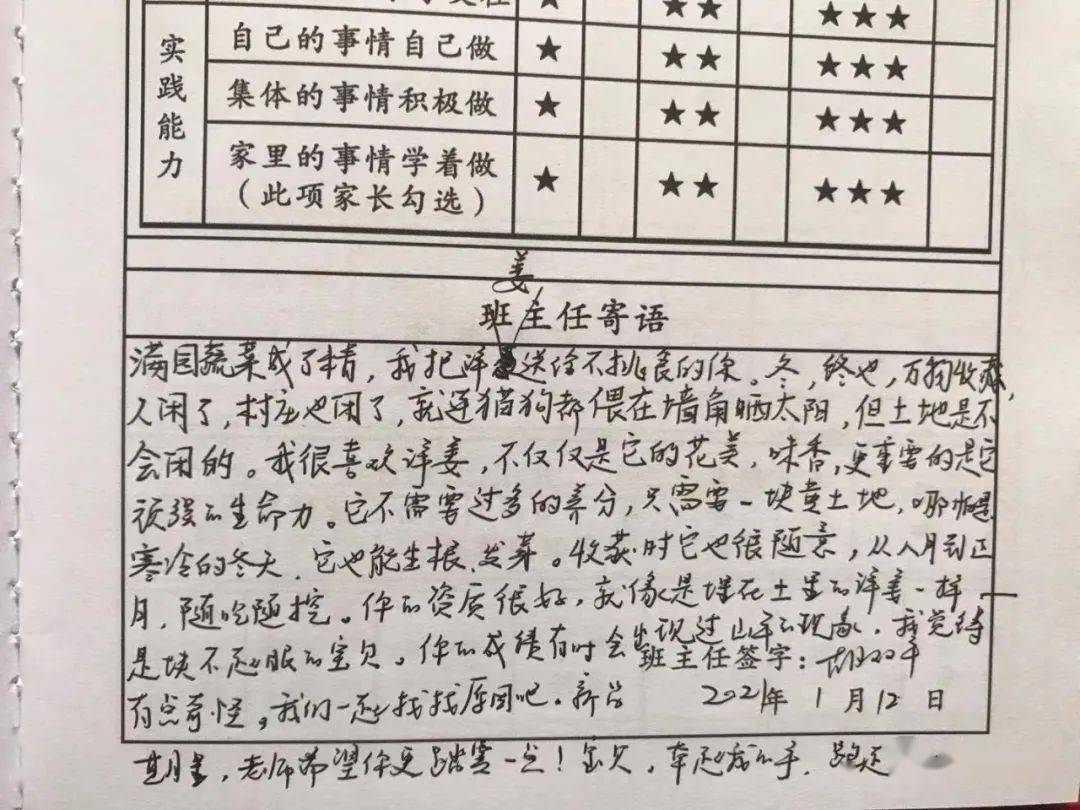 ★ ★★ ★★★
实践能力
自己的事情自己做 ★ ★★ ★★★
集体的事情积极做 ★ ★★ ★★★
家里的事情学着做 ★ ★★ ★★★
（此项家长勾选）
姜
班主任寄语
满园蔬菜成了精，我把洋送给不挑食的你。冬，终也，万物收藏，
人闲了，村庄也闲了，就连猫狗都偎在墙角晒太阳，但土地是不
会闲的。我很喜欢洋姜，不仅仅是它的花美，味香，更重要的是它
顽强的生命力。它不需要过多的养分，只需要一块黄土地，哪怕是
寒冷的冬天，它也能生根、发芽。收获时它也很随意，从八月到正
月，随吃随挖。你的资质很好，就像是埋在土里的洋姜一样
是块不起眼的宝贝。你的成绩有时会出现过山车的现象，我觉得
班主任签字：胡双平
有点奇怪。我们一起找找原因吧。新学
2021年1月12日
期里，老师希望你更踏实一点！宝贝，牵起我的手，跑起